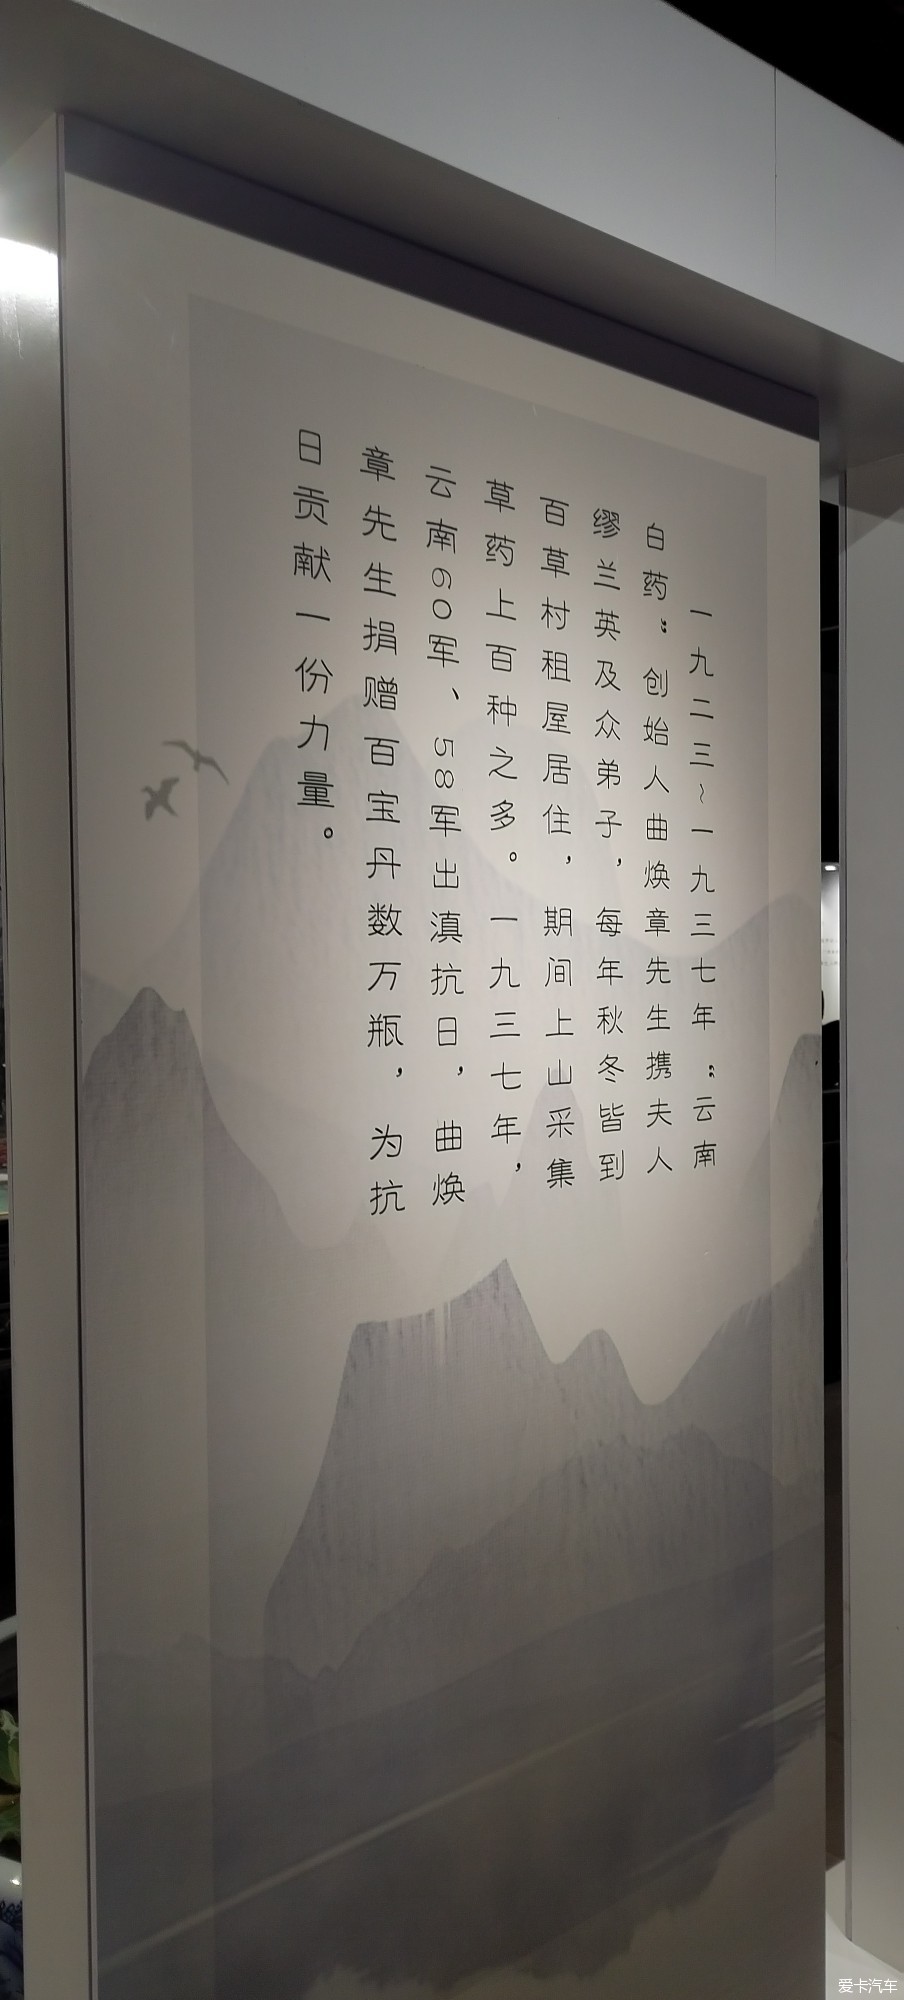 一九二三~一九三七年“云南
白药”创始人曲焕章先生携夫人
缪兰英及众弟子，每年秋冬皆到
百草村租屋居住，期间上山采集
草药上百种之多。一九三七年，
云南60军、58军出滇抗日，曲焕
章先生捐赠百宝丹数万瓶，为抗
日贡献一份力量。
爱卡汽车